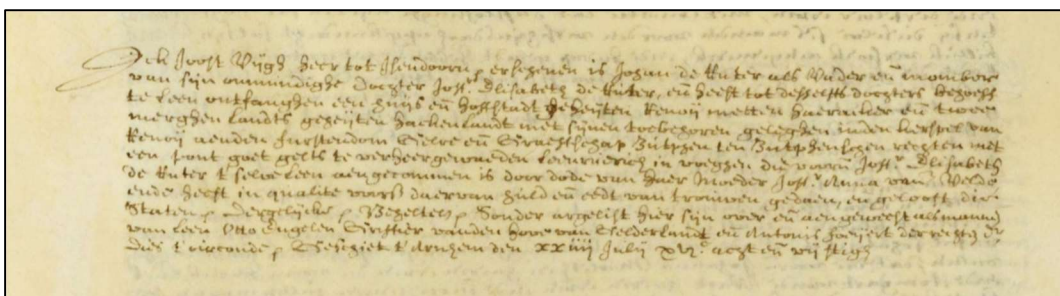 Ick Joost Vijgh heer tot Isendoorn, erschenen is Johan de Ruter als Vader en̄ momber
van sijn onmundighe dochter Joffr. Elisabeth de Ruter, en̄ heeft tot desselfs dochters behoeff
te leen ontfanghen een huis en̄ hoffstadt geheijten Renoij metten haeracker en̄ tween
merghen landts geheijten Hackenlandt met sijnen toebehoren geleghen inden kerspel van
Renoij aenden furstendom Gelre en̄ Graeffschap Zutphen ten Zutphenschen rechten met
een pont goet gelts te verheergewaeden Leenrurich in vueghen die voorn. Joffr. Elisabeth
de Ruter t'selve leen aengecommen is door dode van haer moeder Joffr. Anna van Welde
ende heeft in qualite voors. daervan huld en̄ eedt van trouwen gedaen, en̄ gelooft die
Staten, Dergelijcke, Beheltelijck, Sonder argelist hier sijn over en̄ aengeweest als mannen
van leen Otto Engelen Griffier vanden hove van Gelderlandt en̄ Antonis der rechten
dies t'oirconde, Geschiet t'Arnhem den XXIIIJ Julij XVJc acht en̄ vijftigh